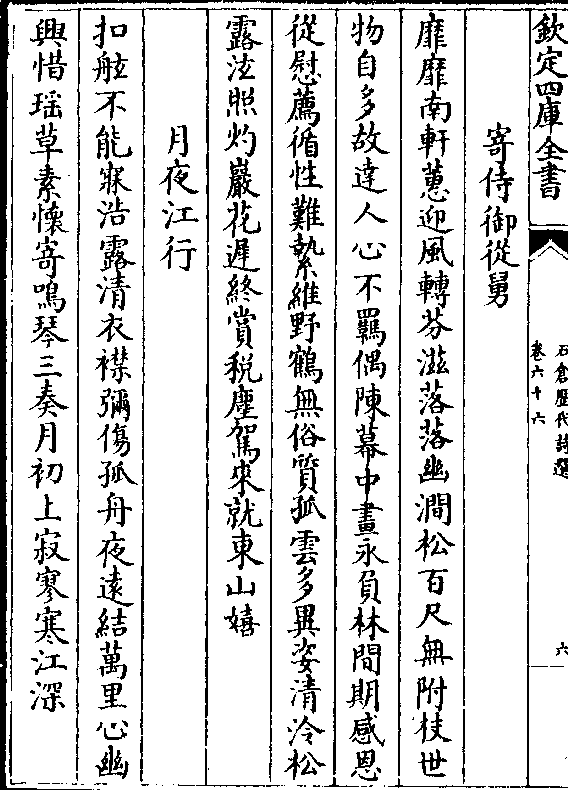 欽定四庫全書
石倉歷代詩選
卷六十六
六
寄侍御從舅
靡靡南軒蕙迎風轉芬滋落落幽澗松百尺無附枝世
物自多故達人心不羈偶陳幕中畫永負林間期感恩
從慰薦循性難縶維野鶴無俗質孤雲多異姿清泠松
露泫照灼巖花遲終當税塵駕來就東山嬉
月夜江行
扣舷不能寐浩露清衣襟彌傷孤舟夜遠結萬里心幽
興惜瑶草素懷寄鳴琴三奏月初上寂寥寒江深